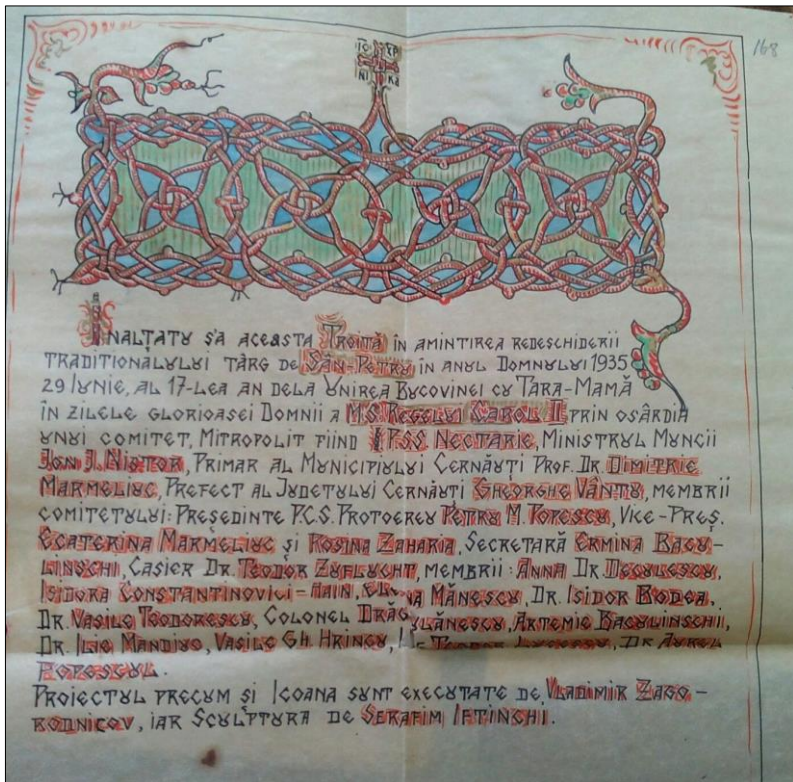 168
IC ХР
NI KA
ÎNALȚATU S'A ACEASTA TROIȚĂ ÎN AMINTIREA REDESCHIDERII
TRADITIONALULUI TÂRG DE SÂN-PETRU ÎN ANUL DOMNULUI 1935
29 IUNIE, AL 17-LEA AN DELA UNIREA BUCOVINEI CU ȚARA-MAMĂ
ÎN ZILELE GLORIOASEI DOMNII A M.S. REGELUI CAROL II PRIN OSÂRDIA
UNUI COMITET, MITROPOLIT FIIND I.P.S.S. NECTARIE, MINISTRUL MUNCII
ION I. NISTOR, PRIMAR AL MUNICIPIULUI CERNĂUȚI PROF. DR. DIMITRIE
MARMELIUC, PREFECT AL JUDEȚULUI CERNĂUȚI GHEORGHE VÂNTU, MEMBRII
COMITETULUI: PREȘEDINTE P.C.S. PROTOEREU PETRU M. POPESCU, VICE-PREȘ.
ECATERINA MARMELIUC ȘI ROSINA ZAHARIA, SECRETARĂ ERMINA BACU-
LINSCHI, CASIER DR. TEODOR ZUFLUCHT, MEMBRII: ANNA DR. DCULESCU,
ISIDORA CONSTANTINOVICI-HAIN, MĂNESCU, DR. ISIDOR BODEA,
DR. VASILE TEODORESCU, COLONEL ARTEMIE BACULINSCHII,
DR. ILIE MANDIUC, VASILE GH. HRINCU, TEODOR DR. AUREL
POPESCUL.
PROIECTUL PRECUM ȘI ICOANA SUNT EXECUTATE DE VLADIMIR ZAGO-
RODNICOV, IAR SCULPTURA DE SERAFIM IFTINCHI.